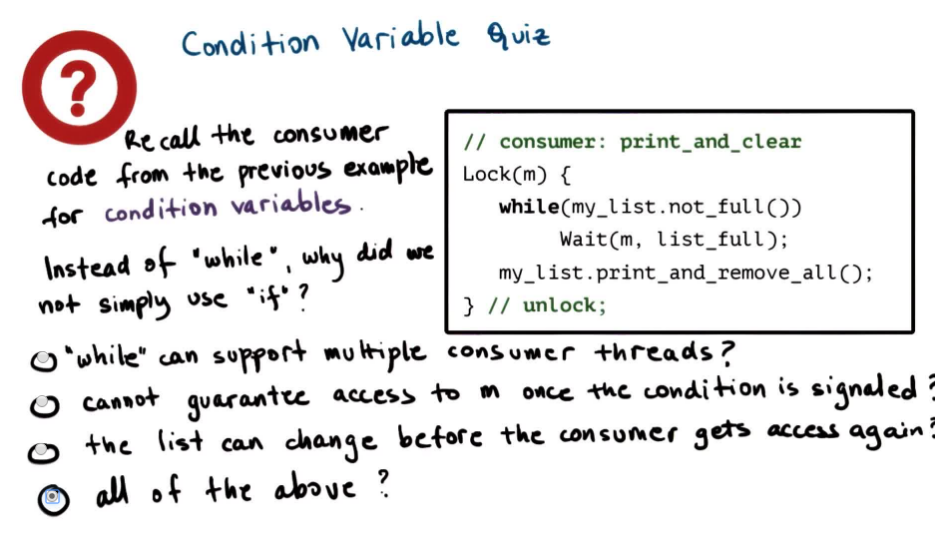 Condition Variable Quiz
?
Recall the consumer
code from the previous example
for condition variables.
Instead of "while", why did we
not simply use "if"?
// consumer: print_and_clear
Lock(m) {
while(my_list.not_full())
Wait(m, list_full);
my_list.print_and_remove_all();
} // unlock;
"while" can support multiple consumer threads?
cannot guarantee access to m once the condition is signaled?
the list can change before the consumer gets access again?
all of the above?